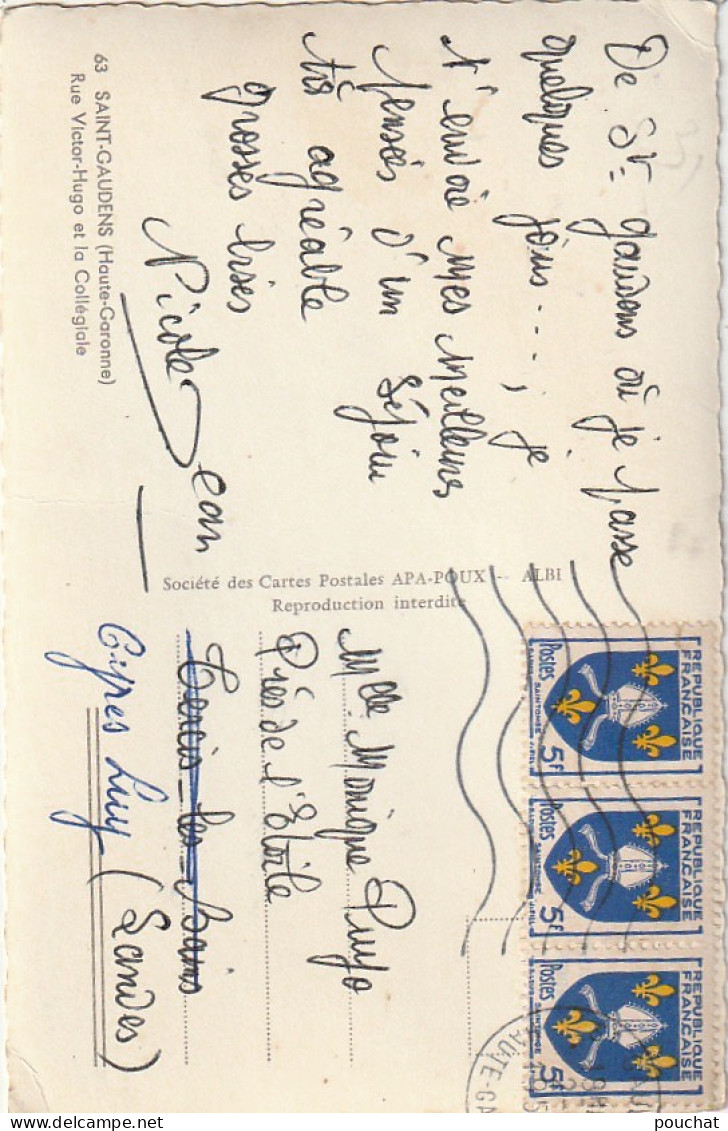 De St. Gaudens où je passe
quelques jours...., je
t'envoie mes meilleures
pensées d'un séjour
très agréable
grosses bises
Nicole Jean
63 SAINT-GAUDENS (Haute-Garonne)
Rue Victor-Hugo et la Collégiale
Société des Cartes Postales APA-POUX -- ALBI
Reproduction interdite
Mlle Monique Puyo
Près de l'Etoile
Tercis-les-Bains
(Landes)
REPUBLIQUE
FRANÇAISE
Postes
SAINTONGE
5F
REPUBLIQUE
FRANÇAISE
Postes
SAINTONGE
5F
REPUBLIQUE
FRANÇAISE
Postes
SAINTONGE
5F
HAUTE-GA
pouchat